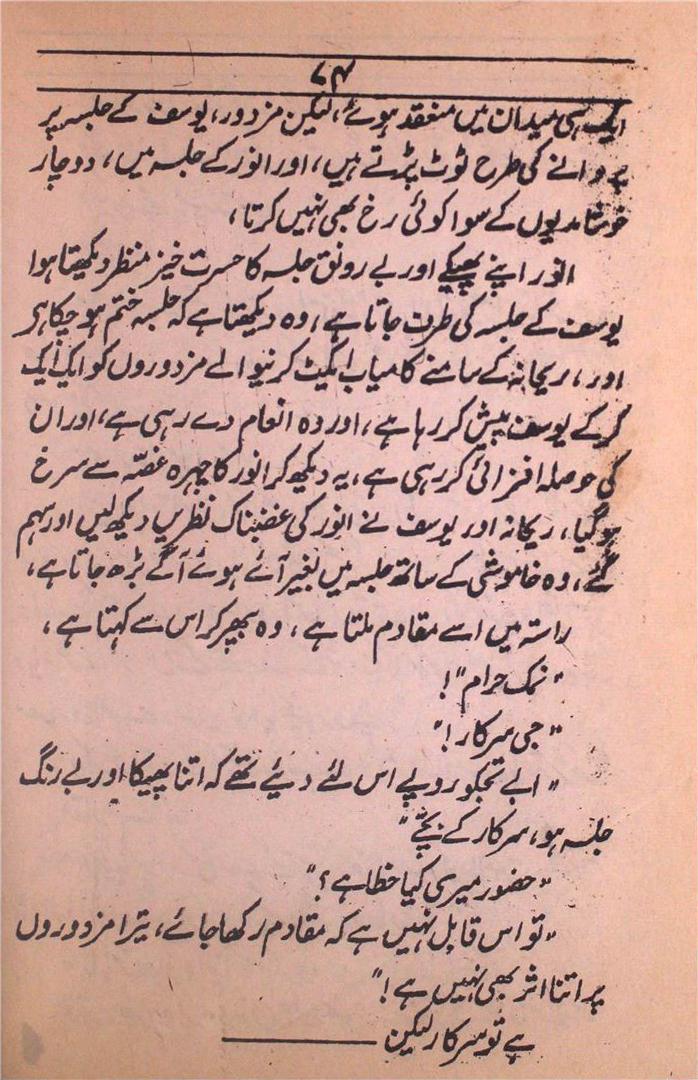 ۷۴
ایک ہی میدان میں منعقد ہوئے، لیکن مزدور، یوسف کے جلسہ پر
پروانے کی طرح ٹوٹ پڑتے ہیں، اور انور کے جلسہ میں، دو چار
خوشامدیوں کے سوا کوئی رخ بھی نہیں کرتا،
انور اپنے پھیکے اور بے رونق جلسہ کا حسرت خیز منظر دیکھتا ہوا
یوسف کے جلسہ کی طرف جاتا ہے، وہ دیکھتا ہے کہ جلسہ ختم ہو چکا ہے
اور، ریحانہ کے سامنے کامیاب ایکٹ کرنیوالے مزدوروں کو ایک ایک
کر کے یوسف پیش کر رہا ہے، اور وہ انعام دے رہی ہے، اور ان
کی حوصلہ افزائی کر رہی ہے، یہ دیکھ کر انور کا چہرہ غصّہ سے سرخ
ہو گیا، ریحانہ اور یوسف نے انور کی غضبناک نظریں دیکھ لیں اور سہم
گئے، وہ خاموشی کے ساتھ جلسہ میں بغیر آئے ہوئے آگے بڑھ جاتا ہے،
راستہ میں اسے مقادم ملتا ہے، وہ بپھر کر اس سے کہتا ہے،
"نمک حرام"!
"جی سرکار!"
"ابے تجکو روپے اس لئے دیئے تھے کہ اتنا پھیکا اور بے رنگ
جلسہ ہو، سرکار کے بچّے"
"حضور میری کیا خطا ہے؟"
"تو اس قابل نہیں ہے کہ مقادم رکھا جائے، تیرا مزدوروں
پر اتنا اثر بھی نہیں ہے!"
ہے تو سرکار لیکن ———